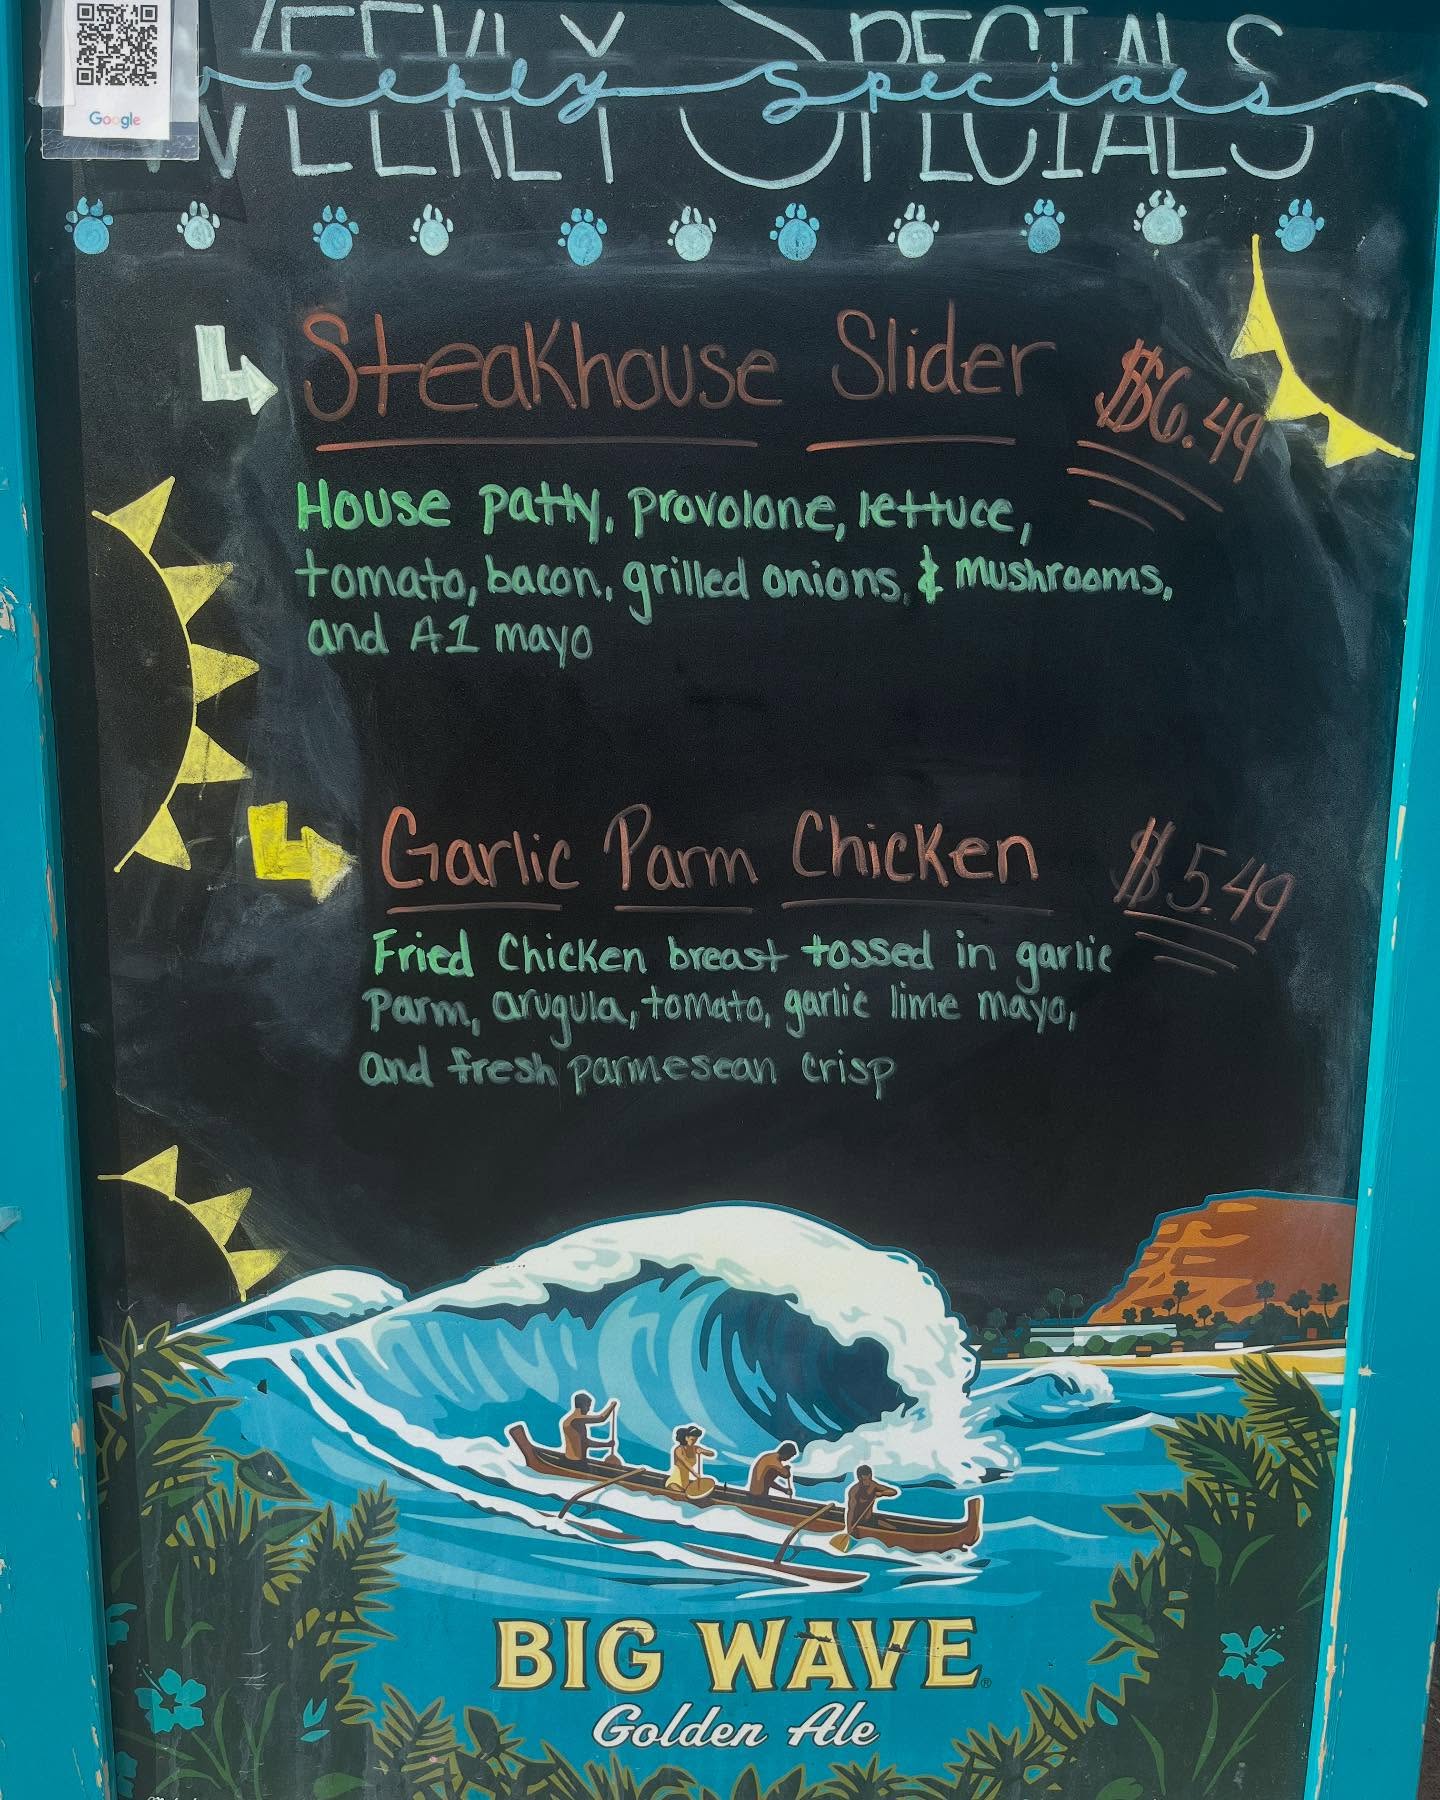 Google
WEEKLY SPECIALS
weekly Specials
Steakhouse Slider $6.49
House patty, provolone, lettuce,
tomato, bacon, grilled onions, & mushrooms,
and A1 mayo
Garlic Parm Chicken $5.49
Fried Chicken breast tossed in garlic
parm, arugula, tomato, garlic lime mayo,
and fresh parmesean crisp
BIG WAVE®
Golden Ale